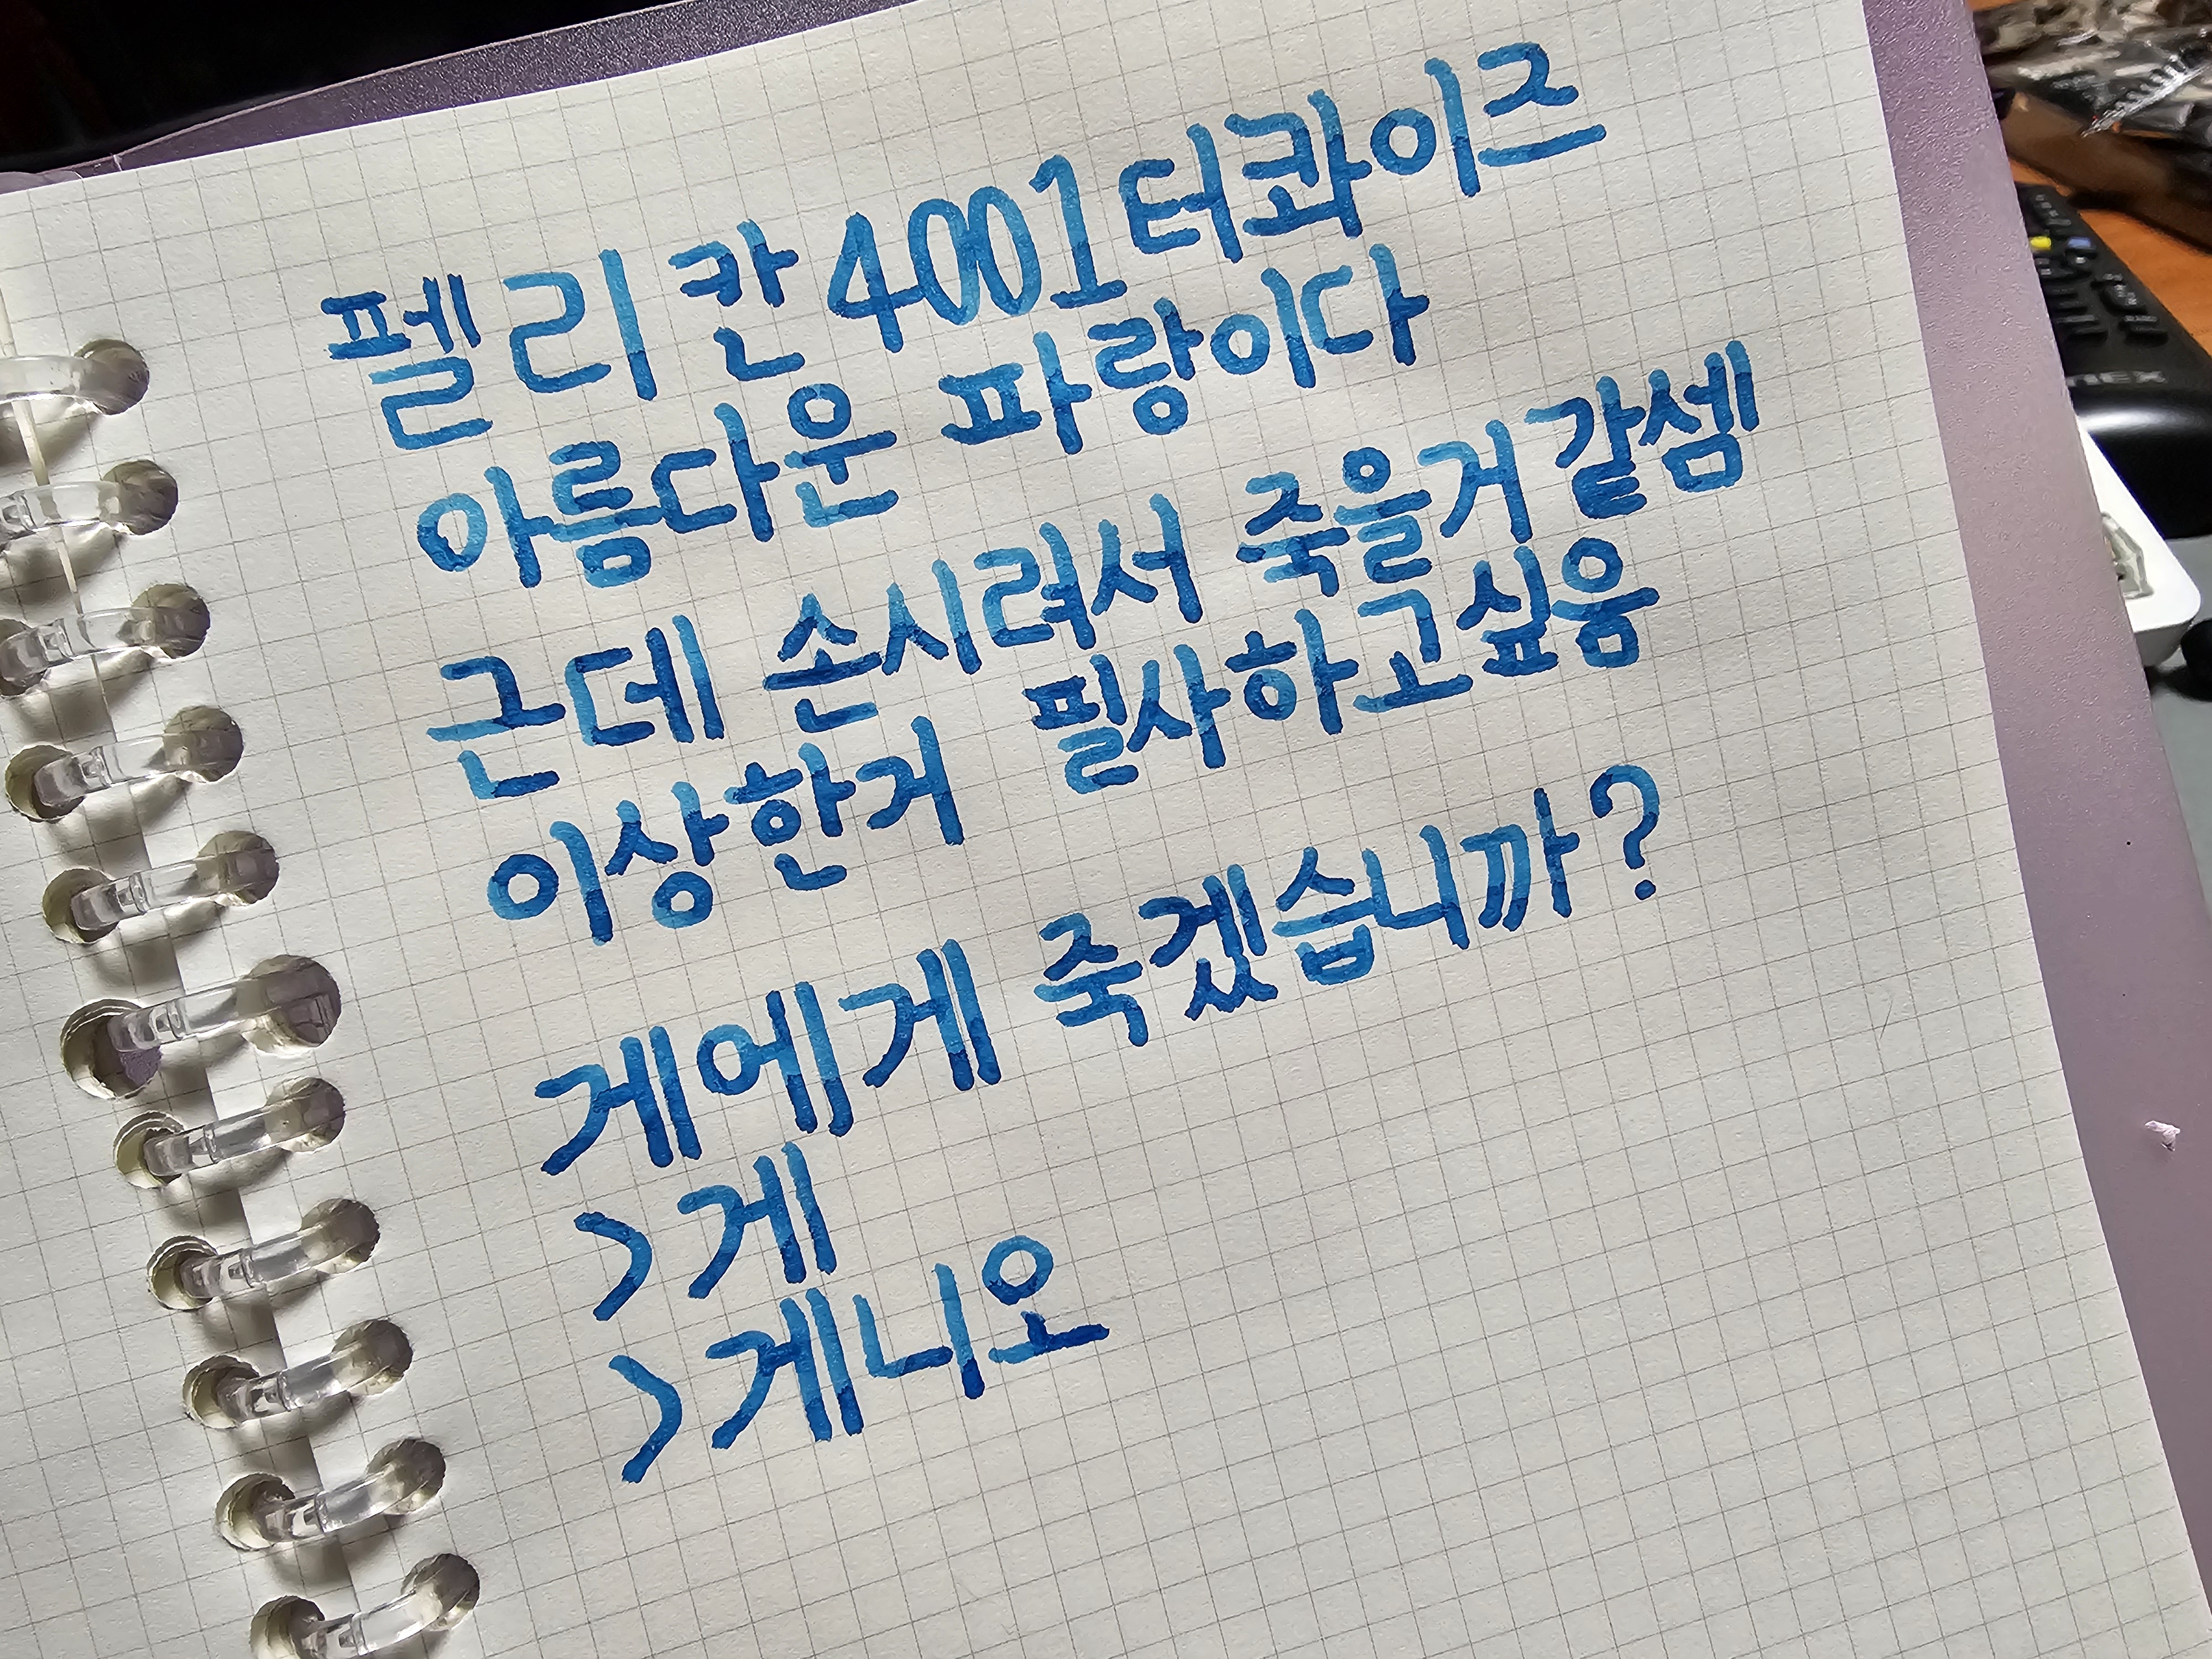 펠리칸 4001 터콰이즈
아름다운 파랑이다
근데 손시려서 죽을거같셈
이상한거 필사하고싶음
게에게 죽겠습니까?
>게
>게니오